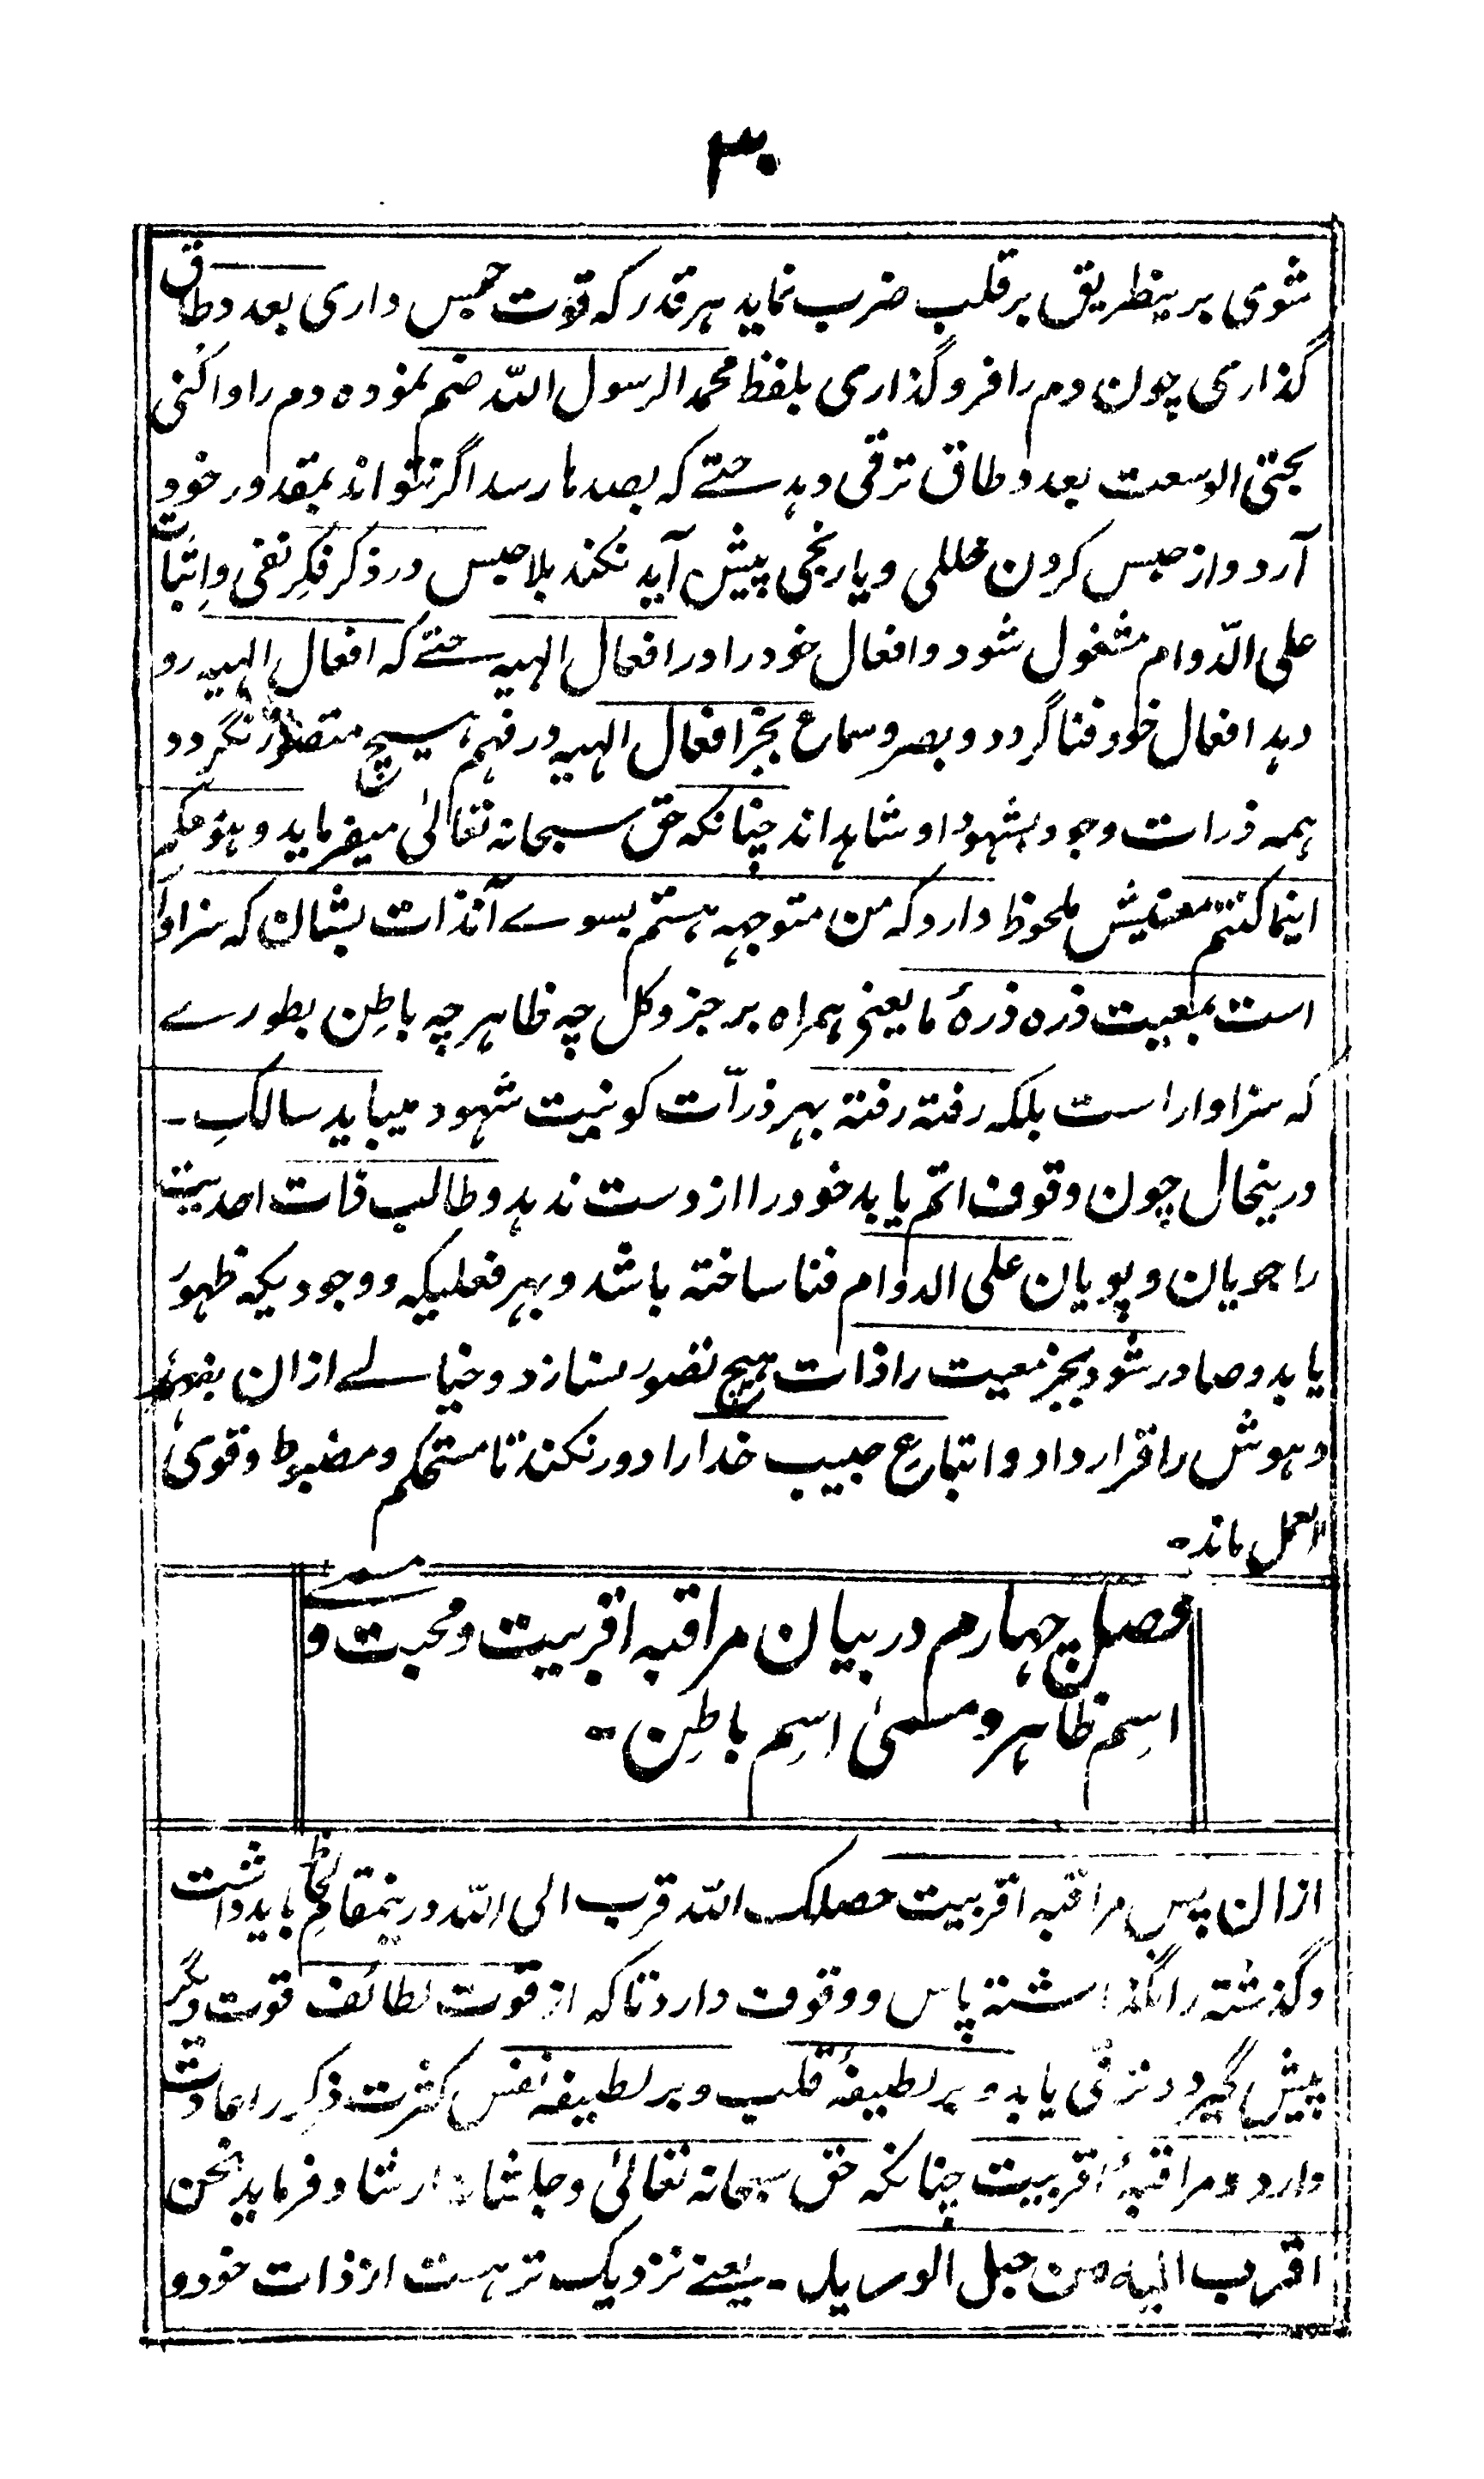 ۳۰
شوی برینطریق بر قلب ضرب نماید هر قدر که قوت حبس داری بعد و طاق
گذاری چون دم را فرو گذاری بلفظ محمد الرسول الله ضم نموده دم را واکنی
بحتی الوسعت بعد و طاق ترقی دهد حتے که بصدها رسد اگر نتواند بمقدور خود
آرد و از حبس کردن خللی و یا رنجی پیش آید نکند بلا حبس در ذکر فکرِ نفی و اِثبات
علی الدّوام مشغول شود و افعال خود را در افعال الٰهیه حتے که افعال الٰهیه رو
دهد افعال خود فنا گردد و بصر و سماع بجز افعال الٰهیه در فهم هیچ متصور نگردد
همه ذرات وجود بشهود او شاهد اند چنانکه حق سبحانه تعالیٰ میفرماید و هو معکم
اینما کنتم معنیش ملحوظ دارد که من متوجهه هستم بسوے آنذات بشان که سزاوار
است بمعیت ذره ذرۀ ما یعنے همراه بر جز و کل چه ظاهر چه باطِن بطورے
که سزاوار است بلکه رفته رفته بهر ذرّات کونیت شهود میباید سالکِ ۔
درینحال چون وقوف اتم یابد خود را از دست ندهد و طالب ذات احدیت
را جویان و پویان علی الدوام فنا ساخته باشد و بهر فعلیکه و وجودیکه ظهور
یابد و صادر شود بجز معیت را ذات هیچ تصور نسازد و خیالے ازان بفهم
و هوش را قرار داد و اتباع حبیب خدا را دور نکند تا مستحکم و مضبوط و قوی
العمل ماند ۔
فصل چهارم در بیان مراقبه اقربیت و محبت و مسمے
اسِم ظاهر و مسمیٰ اسِم باطِن ۔
ازان پس مراقبه اقربیت حصلک الله قرب الی الله درینمقام لحاظ باید داشت
و گذشته را نگذاشته پاس و وقوف دارد تا که از قوت لطائف قوت دیگر
پیش گیرد و ترقی یابد و بر لطیفۂ قلب و بر لطیفه نفس کثرت ذکر را عادت
دارد و مراقبۂ اقربیت چنانکه حق سبحانه تعالیٰ و جلشانه ارشاد فرماید نحن
اقرب الیه من حبل الورید ۔ یعنے نزدیک تر هست از ذات خود و